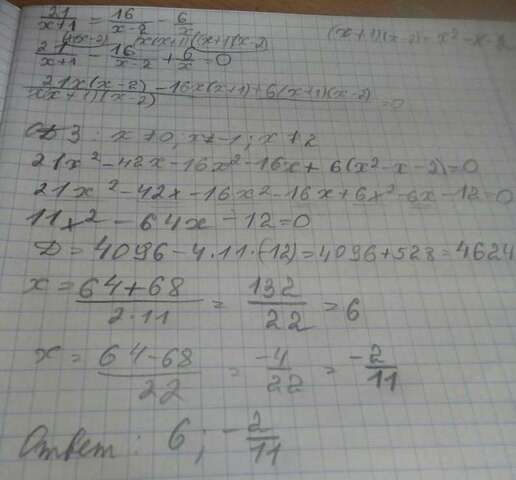 21/(x+1) = 16/(x-2) - 6/x
(x+1)(x-2) = x²-x-2
21/(x+1) - 16/(x-2) + 6/x = 0
(21x(x-2) - 16x(x+1) + 6(x+1)(x-2))/(x(x+1)(x-2)) = 0
ОДЗ: x≠0, x≠-1; x≠2
21x²-42x-16x²-16x+6(x²-x-2)=0
21x²-42x-16x²-16x+6x²-6x-12=0
11x²-64x-12=0
D=4096-4·11·(12)=4096+528=4624
x=(64+68)/(2·11)=132/22=6
x=(64-68)/22=-4/22=-2/11
Ответ: 6; -2/11